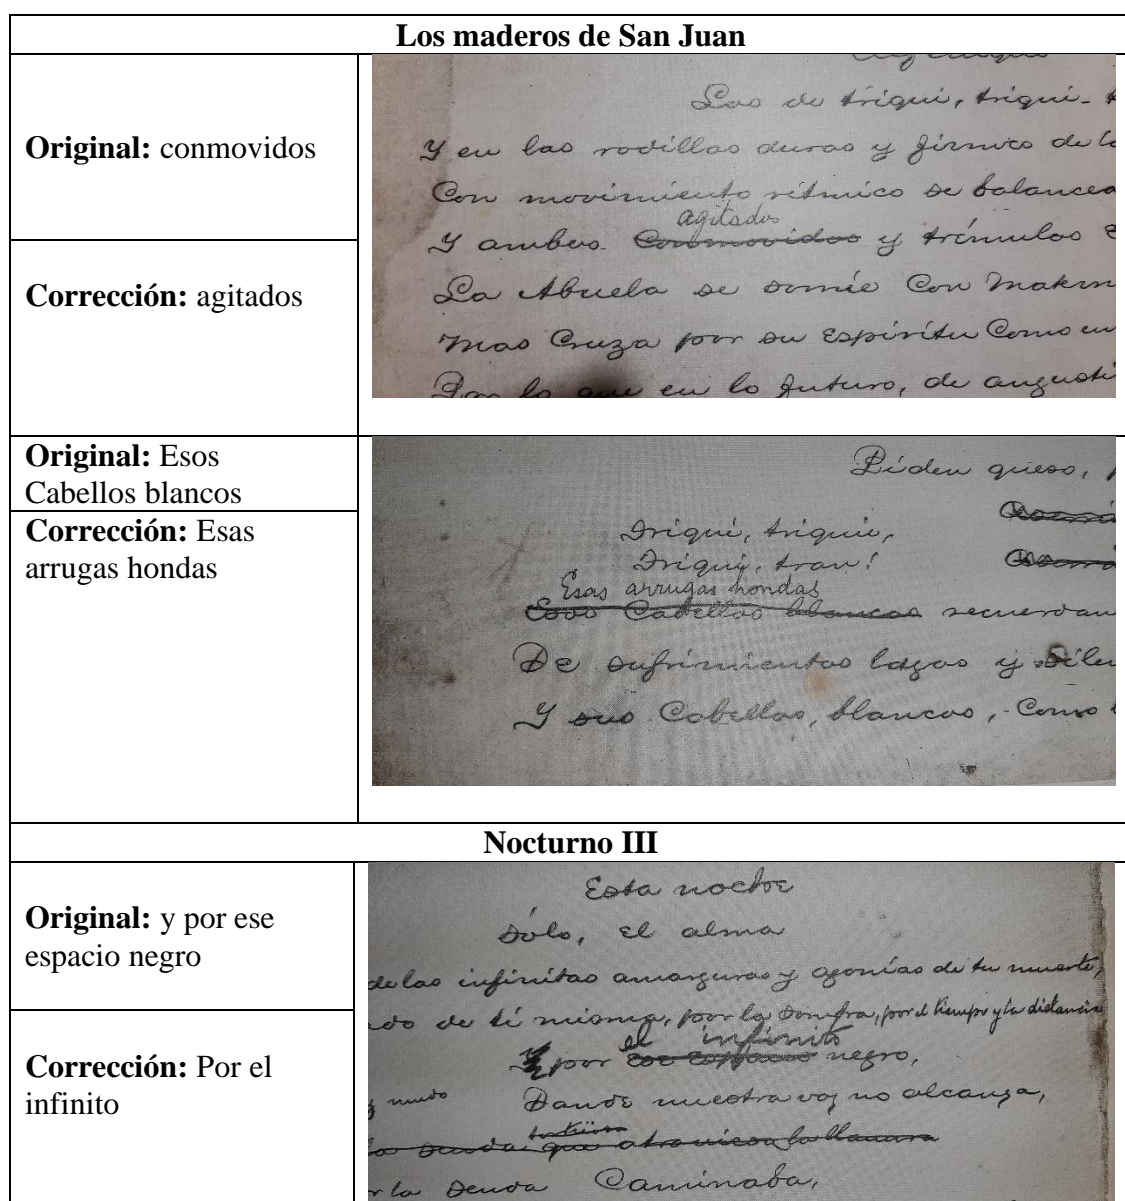 Los maderos de San Juan
Original: conmovidos
Corrección: agitados
Los de triqui, triqui-
Y en las rodillas duras y firmes de la
Con movimiento rítmico se balancea
agitados
Y ambos Conmovidos y trémulos
La Abuela se sonríe Con
Mas Cruza por su Espíritu Como un
Por lo que en lo futuro, de angusti
Original: Esos
Cabellos blancos
Corrección: Esas
arrugas hondas
Piden queso,
Triqui, triqui,
Triqui, tran!
Esas arrugas hondas
Esos Cabellos blancos recuerdan
De sufrimientos lagos y
Y sus Cabellos, blancos, Como
Nocturno III
Original: y por ese
espacio negro
Corrección: Por el
infinito
Esta noche
Sólo, el alma
de las infinitas amarguras y agonías de tu muerte,
de ti misma, por la sombra, por el tiempo y la distancia
el infinito
Y por ese espacio negro,
Donde nuestra voz no alcanza,
y mudo
la senda que atraviesa la llanura
la senda Caminaba,